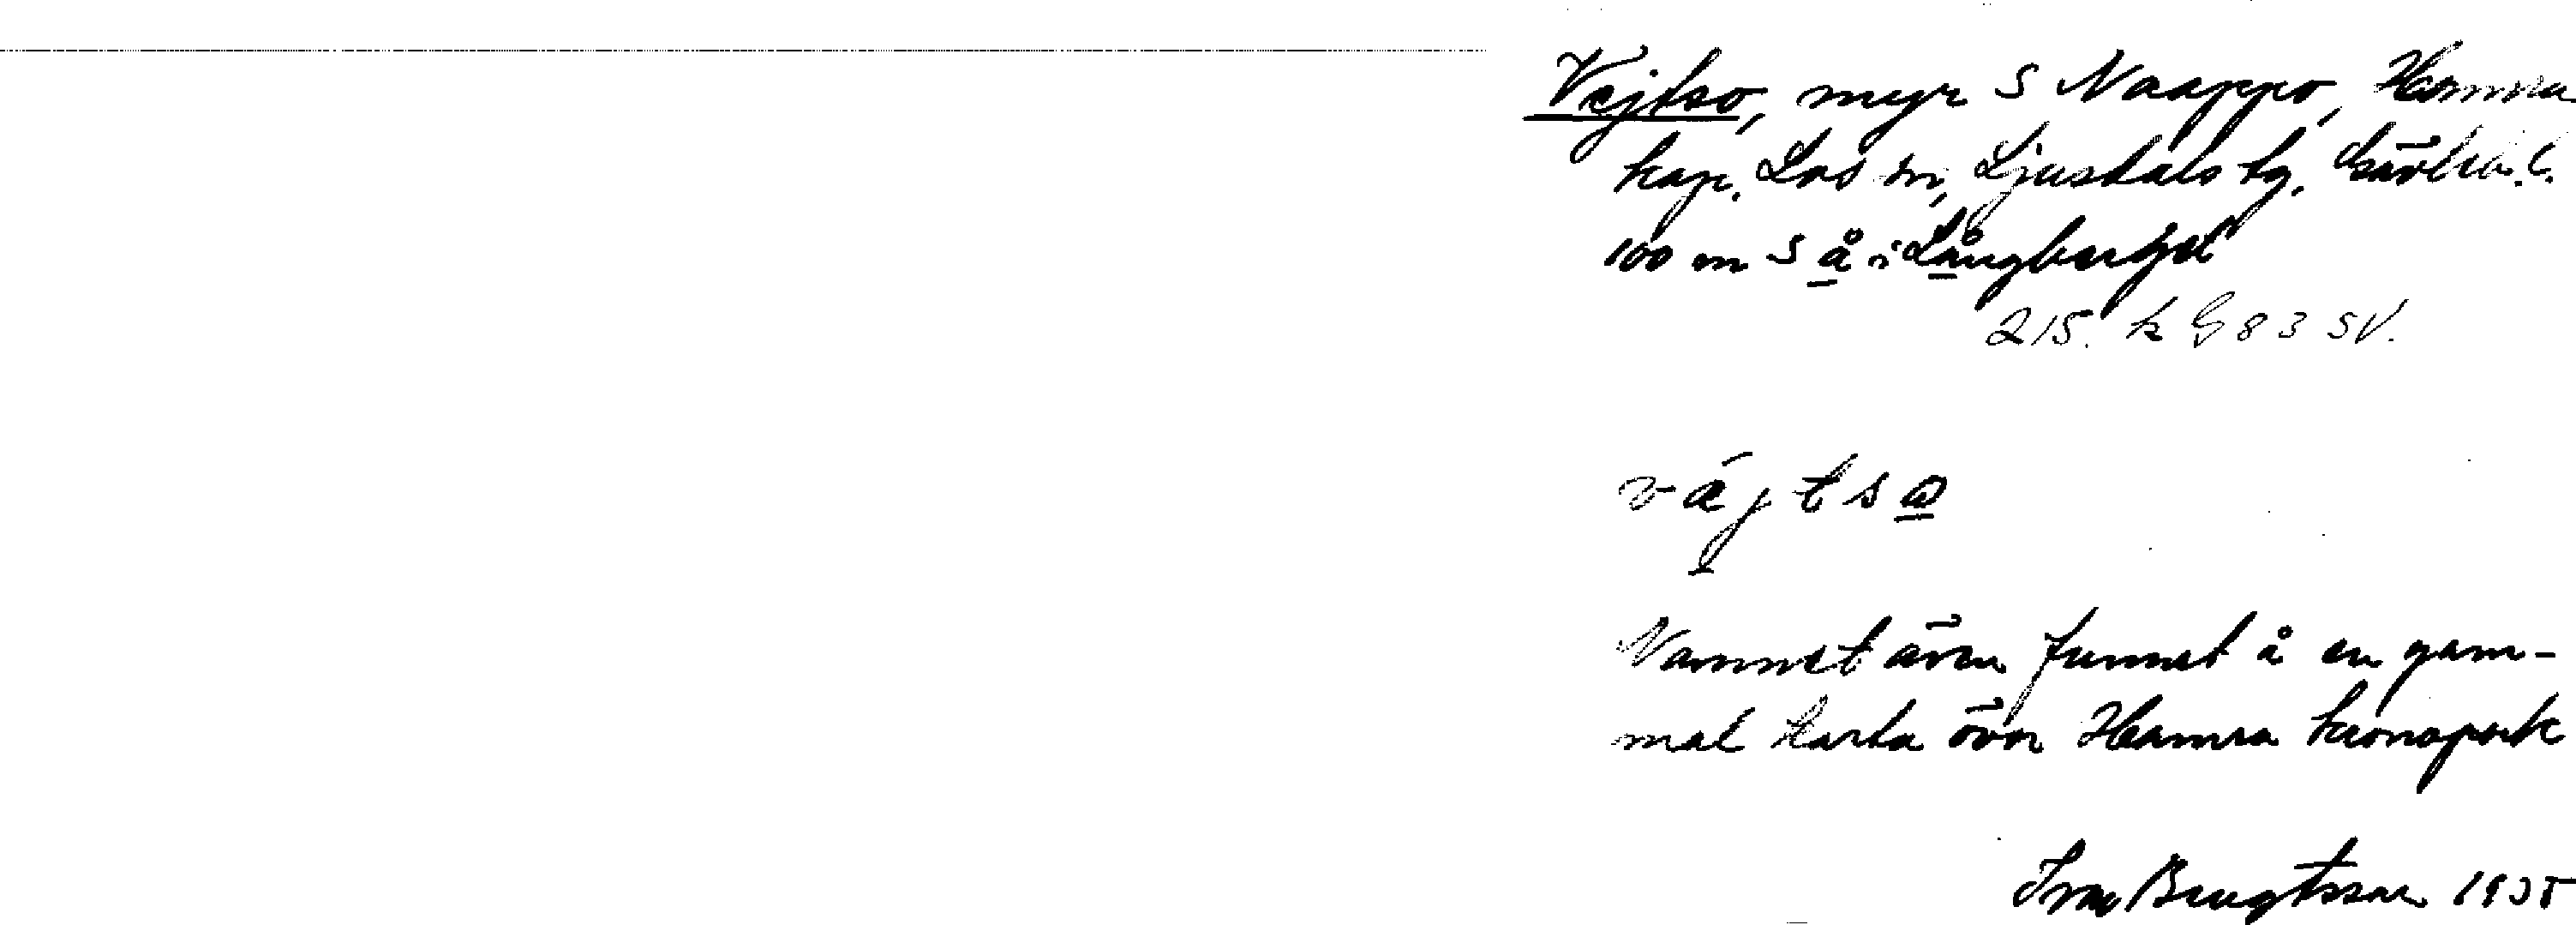 Vejtso, myr S Naappo, Hamra
kap. Los sn, Ljusdals tg, Gävleb. l.
100 m S å i Långberget
215. k G 83 SV.
väjtsω
Namnet även funnet å en gam-
mal karta över Hamra kronopark
Ivar Bengtsson 1935